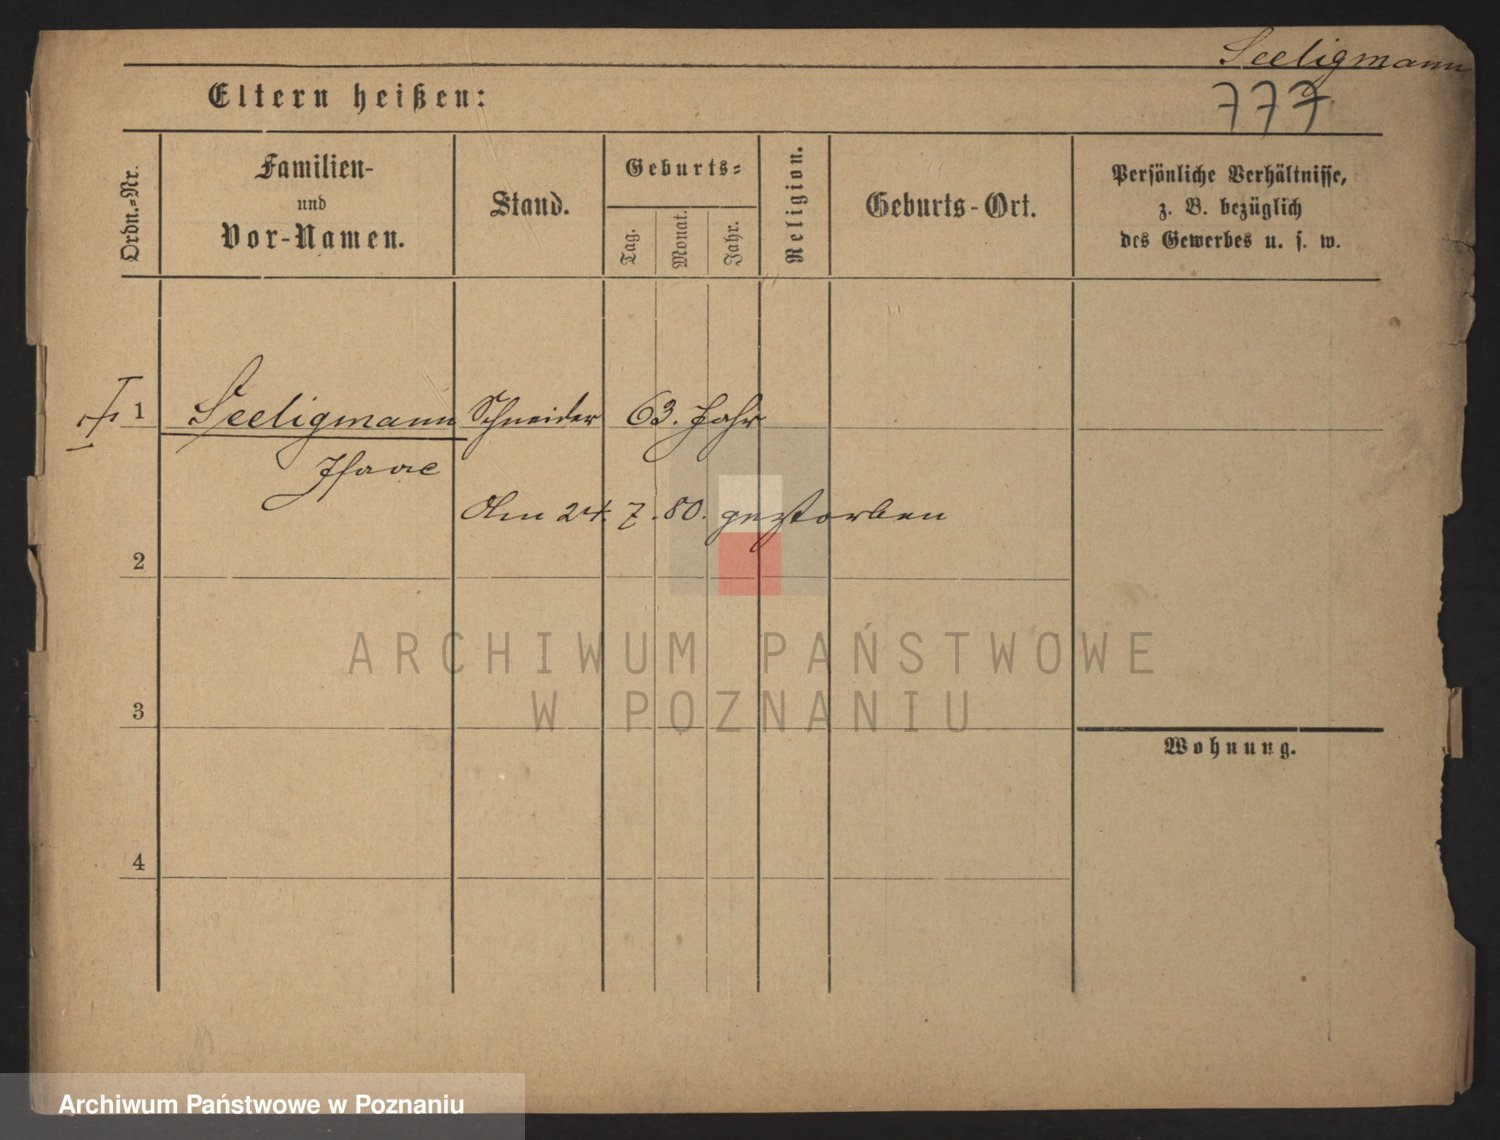 Seeligmann
777
Eltern heißen:
Ordn.-Nr.
Familien-
und
Vor-Namen.
Stand.
Geburts-
Tag.
Monat.
Jahr.
Religion.
Geburts-Ort.
Persönliche Verhältnisse,
z. B. bezüglich
des Gewerbes u. s. w.
1 Seeligmann Schneider 63. Jahr
Isaac
Am 24. 7. 80. gestorben
2
ARCHIWUM PAŃSTWOWE
W POZNANIU
3
Wohnung.
4
Archiwum Państwowe w Poznaniu